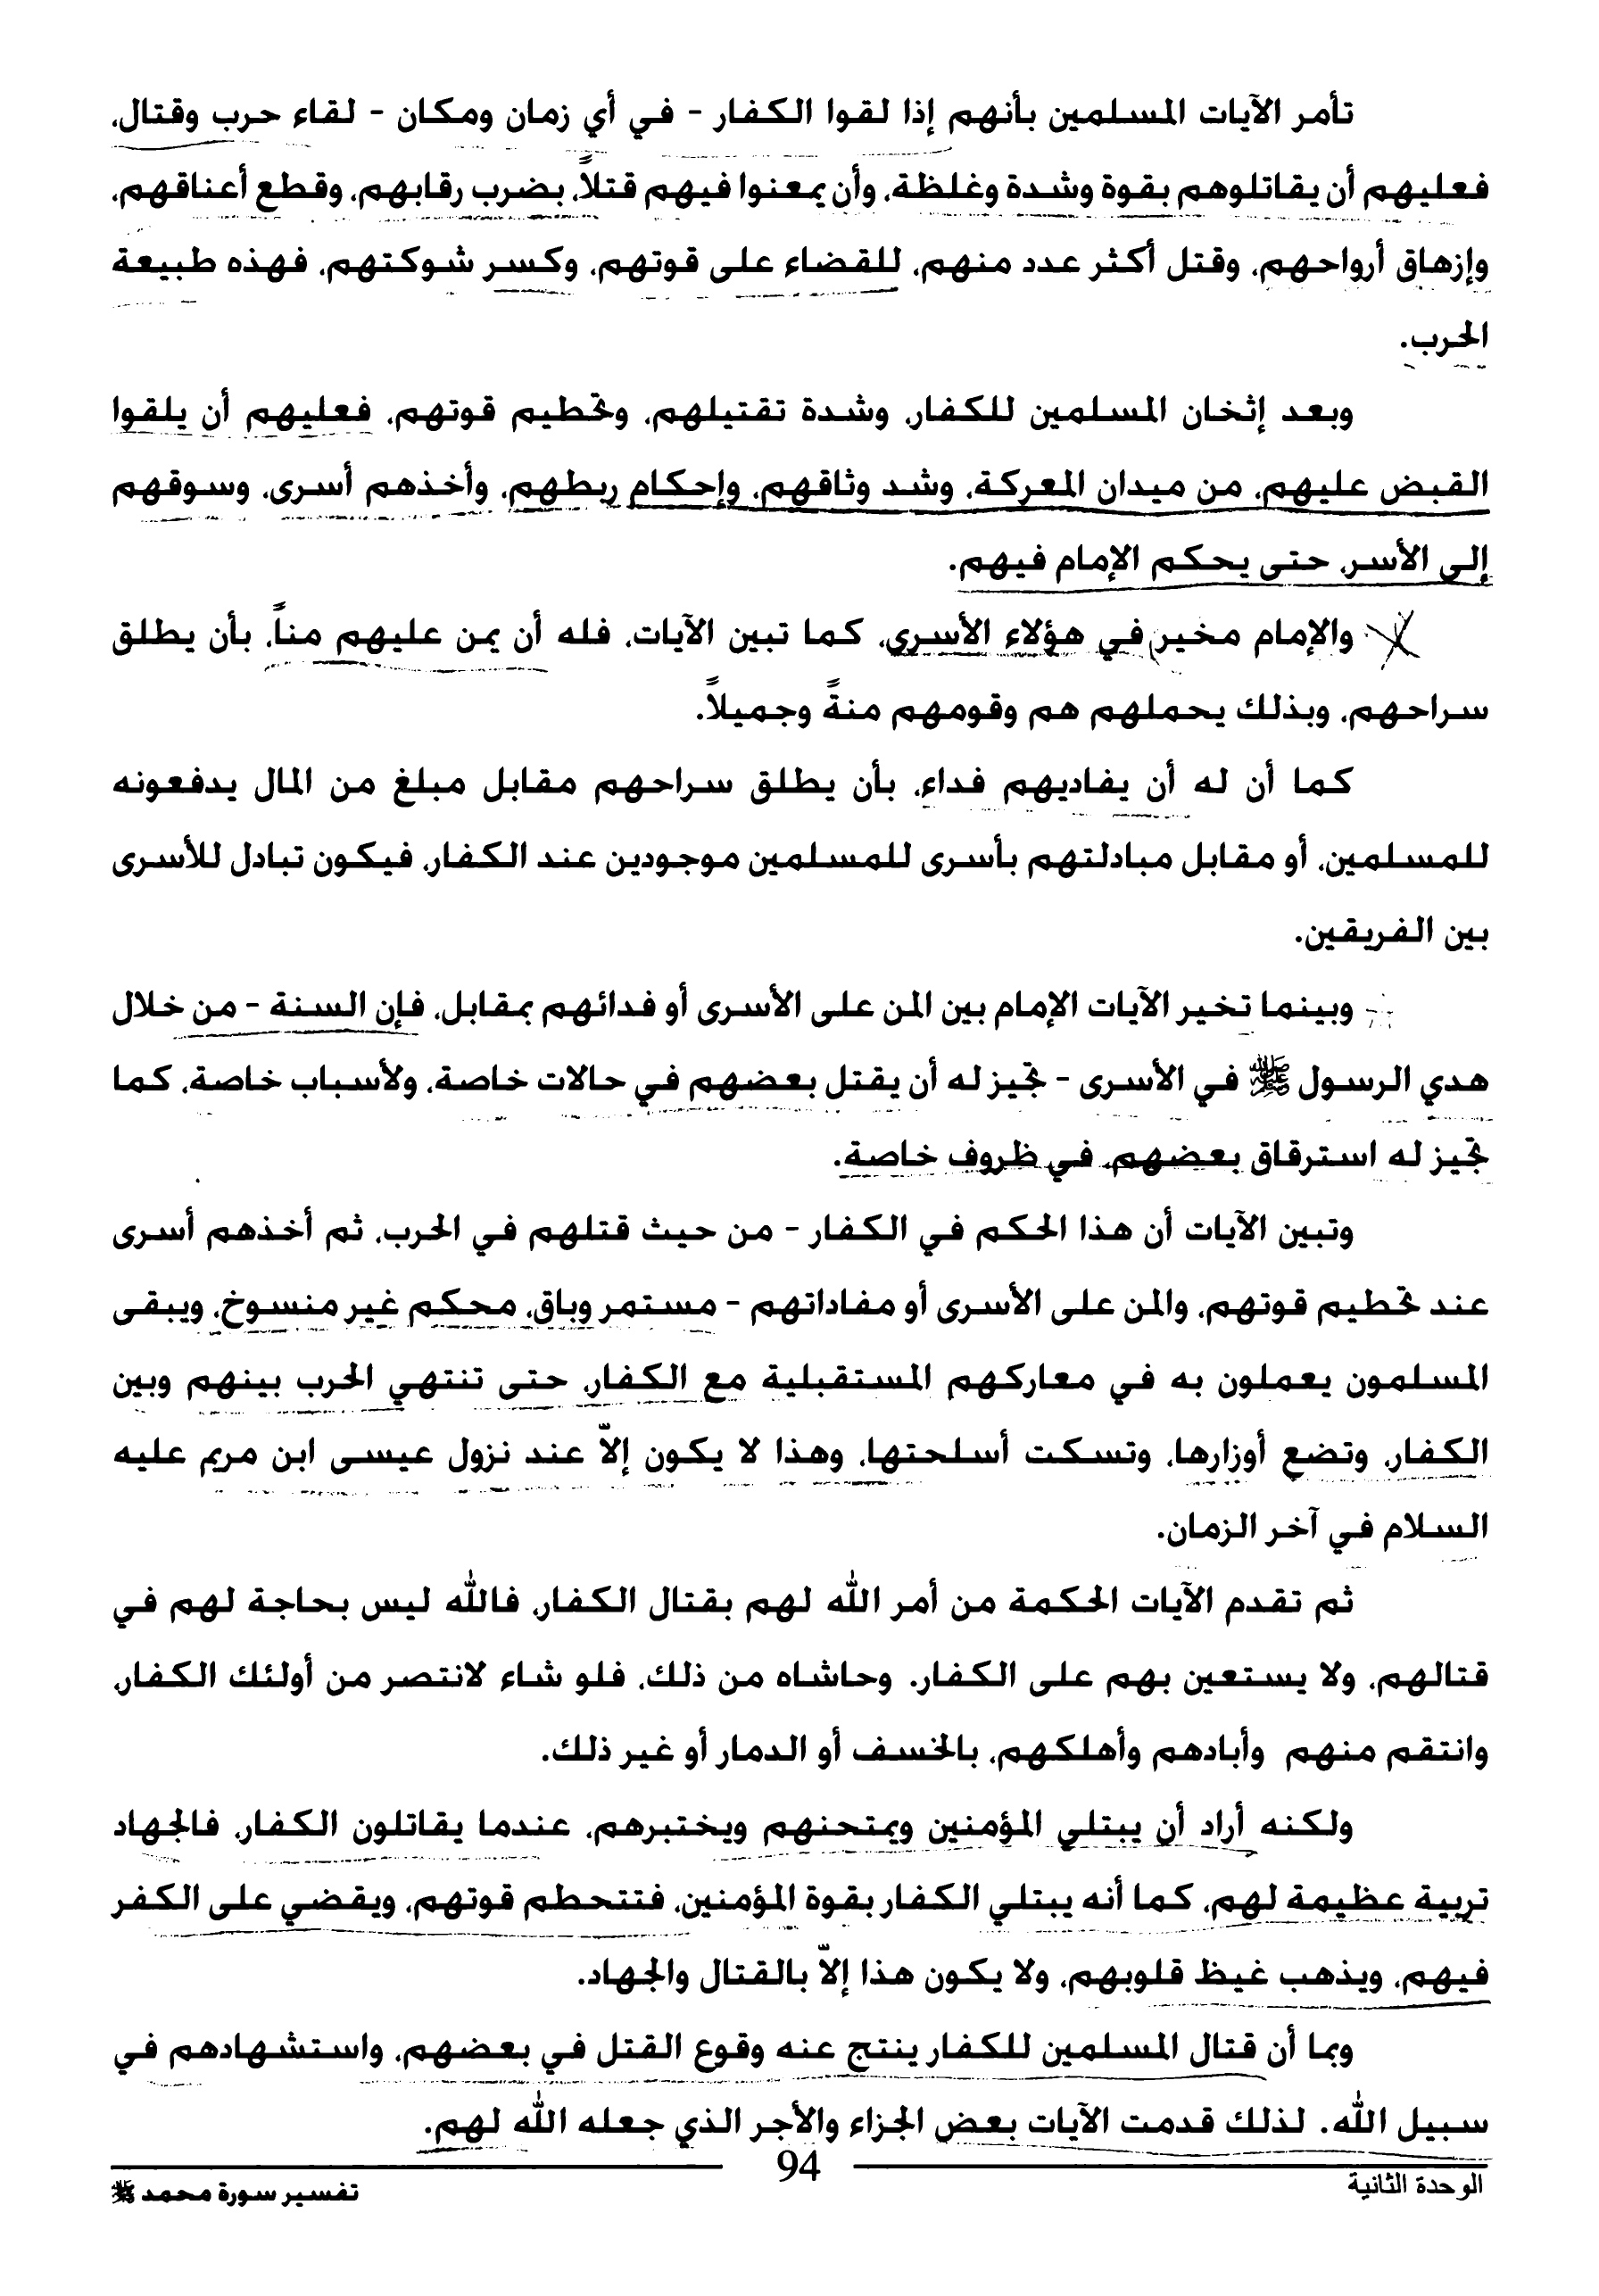 تأمر الآيات المسلمين بأنهم إذا لقوا الكفار - في أي زمان ومكان - لقاء حرب وقتال،
فعليهم أن يقاتلوهم بقوة وشدة وغلظة، وأن يمعنوا فيهم قتلاً، بضرب رقابهم، وقطع أعناقهم،
وإزهاق أرواحهم، وقتل أكثر عدد منهم، للقضاء على قوتهم، وكسر شوكتهم، فهذه طبيعة
الحرب.
وبعد إثخان المسلمين للكفار، وشدة تقتيلهم، وتحطيم قوتهم، فعليهم أن يلقوا
القبض عليهم، من ميدان المعركة، وشد وثاقهم، وإحكام ربطهم، وأخذهم أسرى، وسوقهم
إلى الأسر، حتى يحكم الإمام فيهم.
والإمام مخير في هؤلاء الأسرى، كما تبين الآيات، فله أن يمن عليهم مناً، بأن يطلق
سراحهم، وبذلك يحملهم هم وقومهم منةً وجميلاً.
كما أن له أن يفاديهم فداء، بأن يطلق سراحهم مقابل مبلغ من المال يدفعونه
للمسلمين، أو مقابل مبادلتهم بأسرى للمسلمين موجودين عند الكفار، فيكون تبادل للأسرى
بين الفريقين.
وبينما تخير الآيات الإمام بين المن على الأسرى أو فدائهم بمقابل، فإن السنة - من خلال
هدي الرسول ﷺ في الأسرى - تجيز له أن يقتل بعضهم في حالات خاصة، ولأسباب خاصة، كما
تجيز له استرقاق بعضهم، في ظروف خاصة.
وتبين الآيات أن هذا الحكم في الكفار - من حيث قتلهم في الحرب، ثم أخذهم أسرى
عند تحطيم قوتهم، والمن على الأسرى أو مفاداتهم - مستمر وباق، محكم غير منسوخ، ويبقى
المسلمون يعملون به في معاركهم المستقبلية مع الكفار، حتى تنتهي الحرب بينهم وبين
الكفار، وتضع أوزارها، وتسكت أسلحتها، وهذا لا يكون إلاّ عند نزول عيسى ابن مريم عليه
السلام في آخر الزمان.
ثم تقدم الآيات الحكمة من أمر الله لهم بقتال الكفار، فالله ليس بحاجة لهم في
قتالهم، ولا يستعين بهم على الكفار. وحاشاه من ذلك، فلو شاء لانتصر من أولئك الكفار،
وانتقم منهم وأبادهم وأهلكهم، بالخسف أو الدمار أو غير ذلك.
ولكنه أراد أن يبتلي المؤمنين ويمتحنهم ويختبرهم، عندما يقاتلون الكفار، فالجهاد
تربية عظيمة لهم، كما أنه يبتلي الكفار بقوة المؤمنين، فتتحطم قوتهم، ويقضي على الكفر
فيهم، ويذهب غيظ قلوبهم، ولا يكون هذا إلاّ بالقتال والجهاد.
وبما أن قتال المسلمين للكفار ينتج عنه وقوع القتل في بعضهم، واستشهادهم في
سبيل الله. لذلك قدمت الآيات بعض الجزاء والأجر الذي جعله الله لهم.
94
الوحدة الثانية
تفسير سورة محمد ﷺ